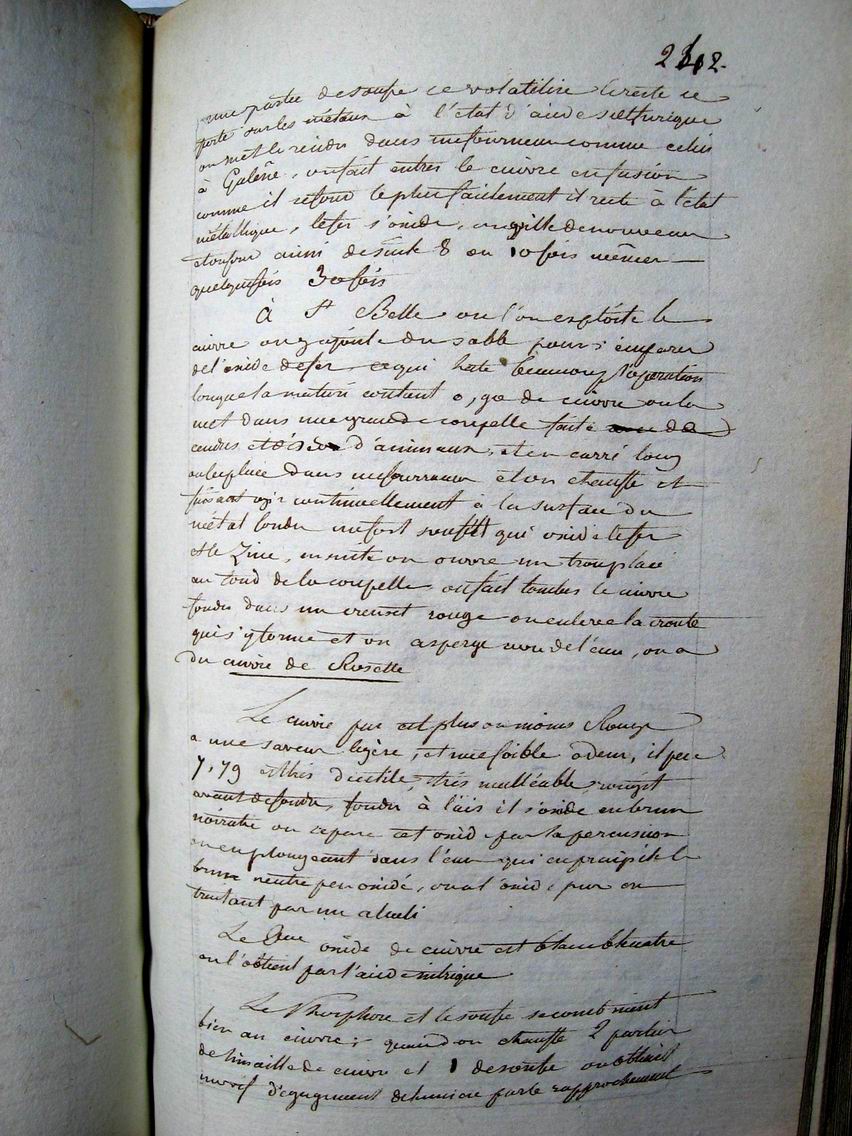 242.
une partie de soufre ce volatilise le reste se
porte sur les métaux à l'état d'acide sulfurique
on met le résidu dans un fourneau comme celui
à Galêne, on fait entrer le cuivre en fusion
comme il refond le plus facilement il reste à l'état
métallique, le fer s'oxide, on grille de nouveau
et on fond ainsi de suite 8 ou 10 fois même
quelquefois 30 fois
à St Belle ou l'on exploite le
cuivre on y ajoute du sable pour s'emparer
de l'oxide de fer ce qui hate beaucoup l'opération
lorsque la matière contient 0,90 de cuivre on la
met dans une grande coupelle faite
cendres et d'os d'animaux, et en carré long
on le place dans un fourneau et on chauffe et
faisant agir continuellement à la surface du
métal fondu un fort soufflet qui oxide le fer
et le Zinc, ensuite on ouvre un trou placé
au fond de la coupelle on fait tomber le cuivre
fondu dans un creuset rouge on enleve la croute
qui s'y forme et on asperge avec de l'eau, on a
du cuivre de Rosette
Le cuivre pur est plus ou moins Rouge
a une saveur légère, et une foible odeur, il pese
7,79 est très ductile, très malléable, rougit
avant de fondre, fondu à l'air il s'oxide en brun
noiratre on separe cet oxide par la percussion
en plongeant dans l'eau qui en précipite le
brun neutre peu oxidé, on a l'oxide pur en
traitant par un alcali
Le oxide de cuivre est blanc bleuatre
on l'obtient par l'acide nitrique
Le Phosphore et le soufre se combinent
bien au cuivre; quand on chauffe 2 parties
de limaille de cuivre et 1 de soufre on obtient
un vif dégagement de lumiere par le rapprochement